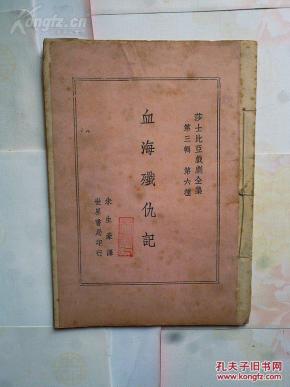 莎士比亞戲劇全集
第三輯 第六種
血海殲仇記
朱生豪譯
世界書局印行
kongfz.com
孔夫子旧书网